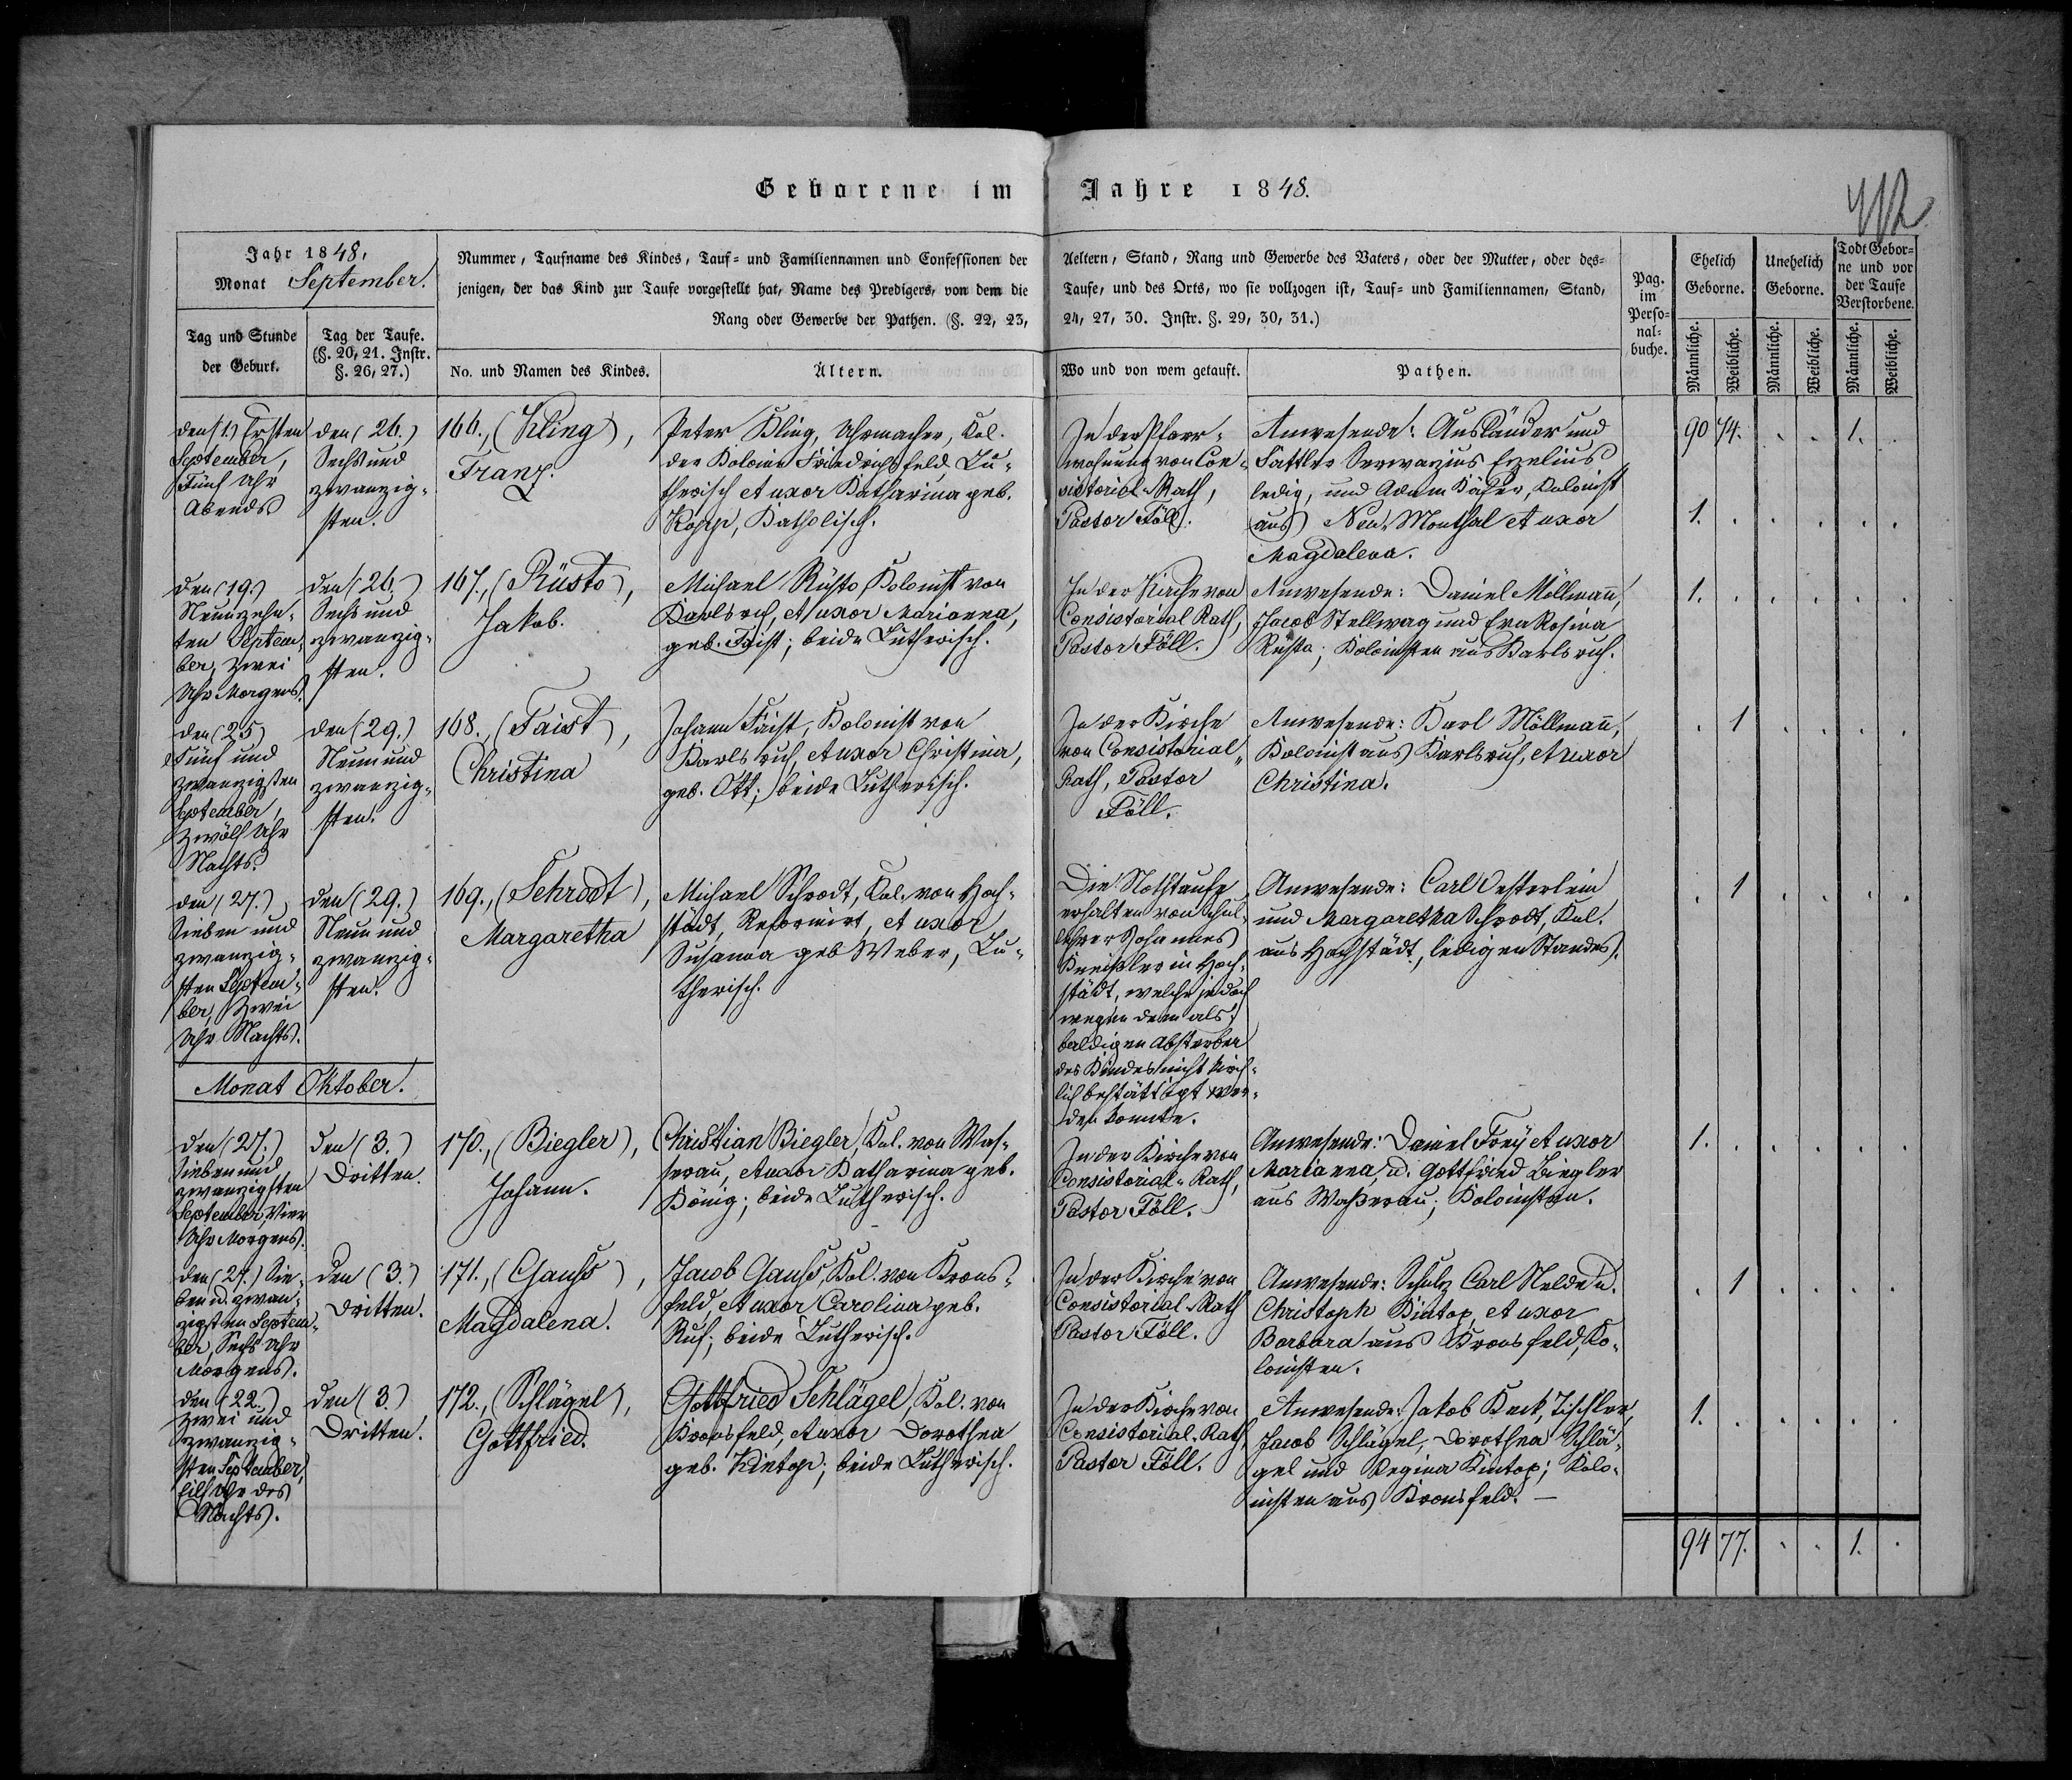 Geborene im Jahre 1848.
412
Jahr 1848,
Monat September.
Nummer, Taufname des Kindes, Tauf- und Familiennamen und Confessionen der
jenigen, der das Kind zur Taufe vorgestellt hat, Name des Predigers, von dem die
Rang oder Gewerbe der Pathen. (§. 22, 23,
Aeltern, Stand, Rang und Gewerbe des Vaters, oder der Mutter, oder des-
Taufe, und des Orts, wo sie vollzogen ist, Tauf- und Familiennamen, Stand,
24, 27, 30. Instr. §. 29, 30, 31.)
Pag.
im
Perso-
nal-
buche.
Ehelich
Geborne.
Unehelich
Geborne.
Todt Gebor-
ne und vor
der Taufe
Verstorbene.
Tag und Stunde
der Geburt.
Tag der Taufe.
(§. 20, 21. Instr.
§. 26, 27.)
No. und Namen des Kindes.
Ältern.
Wo und von wem getauft.
Pathen.
Männliche.
Weibliche.
Männliche.
Weibliche.
Männliche.
Weibliche.
den (1.) Ersten
September,
Fünf Uhr
Abends
den (26.)
Sechs und
zwanzig-
sten.
166., (Kling),
Franz.
Peter Kling, Uhrmacher, Kol.
der Kolonie Friedrichsfeld Lu-
therisch et uxor Katharina geb.
Kopp, Katholisch.
In der Pfarr-
wohnung von Con-
sistorial-Rath,
Pastor Föll.
Anwesende: Ausländer und
Sattler Servazius
ledig, und Adam Käfer, Kolonist
aus Neu-Monthal et uxor
Magdalena.
90 74. . . 1. .
1. . . . . .
den (19.)
Neunzehn-
ten Septem-
ber, Zwei
Uhr Morgens.
den (26.)
Sechs und
zwanzig-
sten.
167., (Rüsto),
Jakob.
Michael Rüsto, Kolonist von
Karlsruh, et uxor Marianna,
geb. Faist; beide Lutherisch.
In der Kirche von
Consistorial Rath,
Pastor Föll.
Anwesende: Daniel Möllmañ,
Jacob Stellwag und Eva Rosina
Rüsto; Kolonisten aus Karlsruh.
1. . . . . .
den (25)
Fünf und
zwanzigsten
September,
Zwölf Uhr
Nachts.
den (29.)
Neun und
zwanzig-
sten.
168., (Faist),
Christina
Johann Faist, Kolonist von
Karlsruh, et uxor Christina,
geb. Ott; beide Lutherisch.
In der Kirche
von Consistorial-
Rath, Pastor
Föll.
Anwesende: Karl Möllmañ,
Kolonist aus Karlsruh, et uxor
Christina.
. 1 . . . .
den (27.)
Sieben und
zwanzig-
sten Septem-
ber, Zwei
Uhr Nachts.
den (29.)
Neun und
zwanzig-
sten.
169., (Schrodt),
Margaretha
Michael Schrodt, Kol. von Hoch-
städt, Reformirt, et uxor
Susanna geb Weber, Lu-
therisch.
Die Nothtaufe
erhalten von Schul-
lehrer Johannes
in Hoch-
städt, welche jedoch
wegen dem als-
baldigen Absterben
des Kindes nicht kirch-
lich bestättigt wer-
den konnte.
Anwesende: Carl Oesterlein
und Margaretha Schrodt, Kol.
aus Hochstädt, ledigen Standes.
. 1 . . . .
Monat Oktober.
den (27.)
Sieben und
zwanzigsten
September, Vier
Uhr Morgens.
den (3.)
Dritten.
170., (Biegler),
Johann.
Christian Biegler, Kol. von Was-
serau, et uxor Katharina geb.
König; beide Lutherisch.
In der Kirche von
Consistorial-Rath,
Pastor Föll.
Anwesende: Daniel Frey et uxor
Marianna, u. Gottfried Biegler
aus Waßerau; Kolonisten.
1. . . . . .
den (27.) Sie-
ben u. zwan-
zigsten Septem-
ber, Sechs Uhr
Morgens.
den (3.)
Dritten.
171., (Gauss),
Magdalena.
Jacob Gauss, Kol. von Krons-
feld, et uxor Carolina geb.
Ruf; beide Lutherisch.
In der Kirche von
Consistorial-Rath
Pastor Föll.
Anwesende: Schulz Carl Nelde u.
Christoph Kintop, et uxor
Barbara aus Kronsfeld, Ko-
lonisten.
. 1 . . . .
den (22.)
Zwei und
zwanzig-
sten September,
Eilf Uhr des
Nachts.
den (3.)
Dritten.
172., (Schlägel),
Gottfried.
Gottfried Schlägel, Kol. von
Kronsfeld, et uxor Dorothea
geb. Kintop; beide Lutherisch.
In der Kirche von
Consistorial-Rath,
Pastor Föll.
Anwesende: Jakob Keck, Tischler,
Jacob Schlägel, Dorothea Schlä-
gel und Regina Kintop; Kolo-
nisten aus Kronsfeld. —
1. . . . . .
94 77. . . 1. .